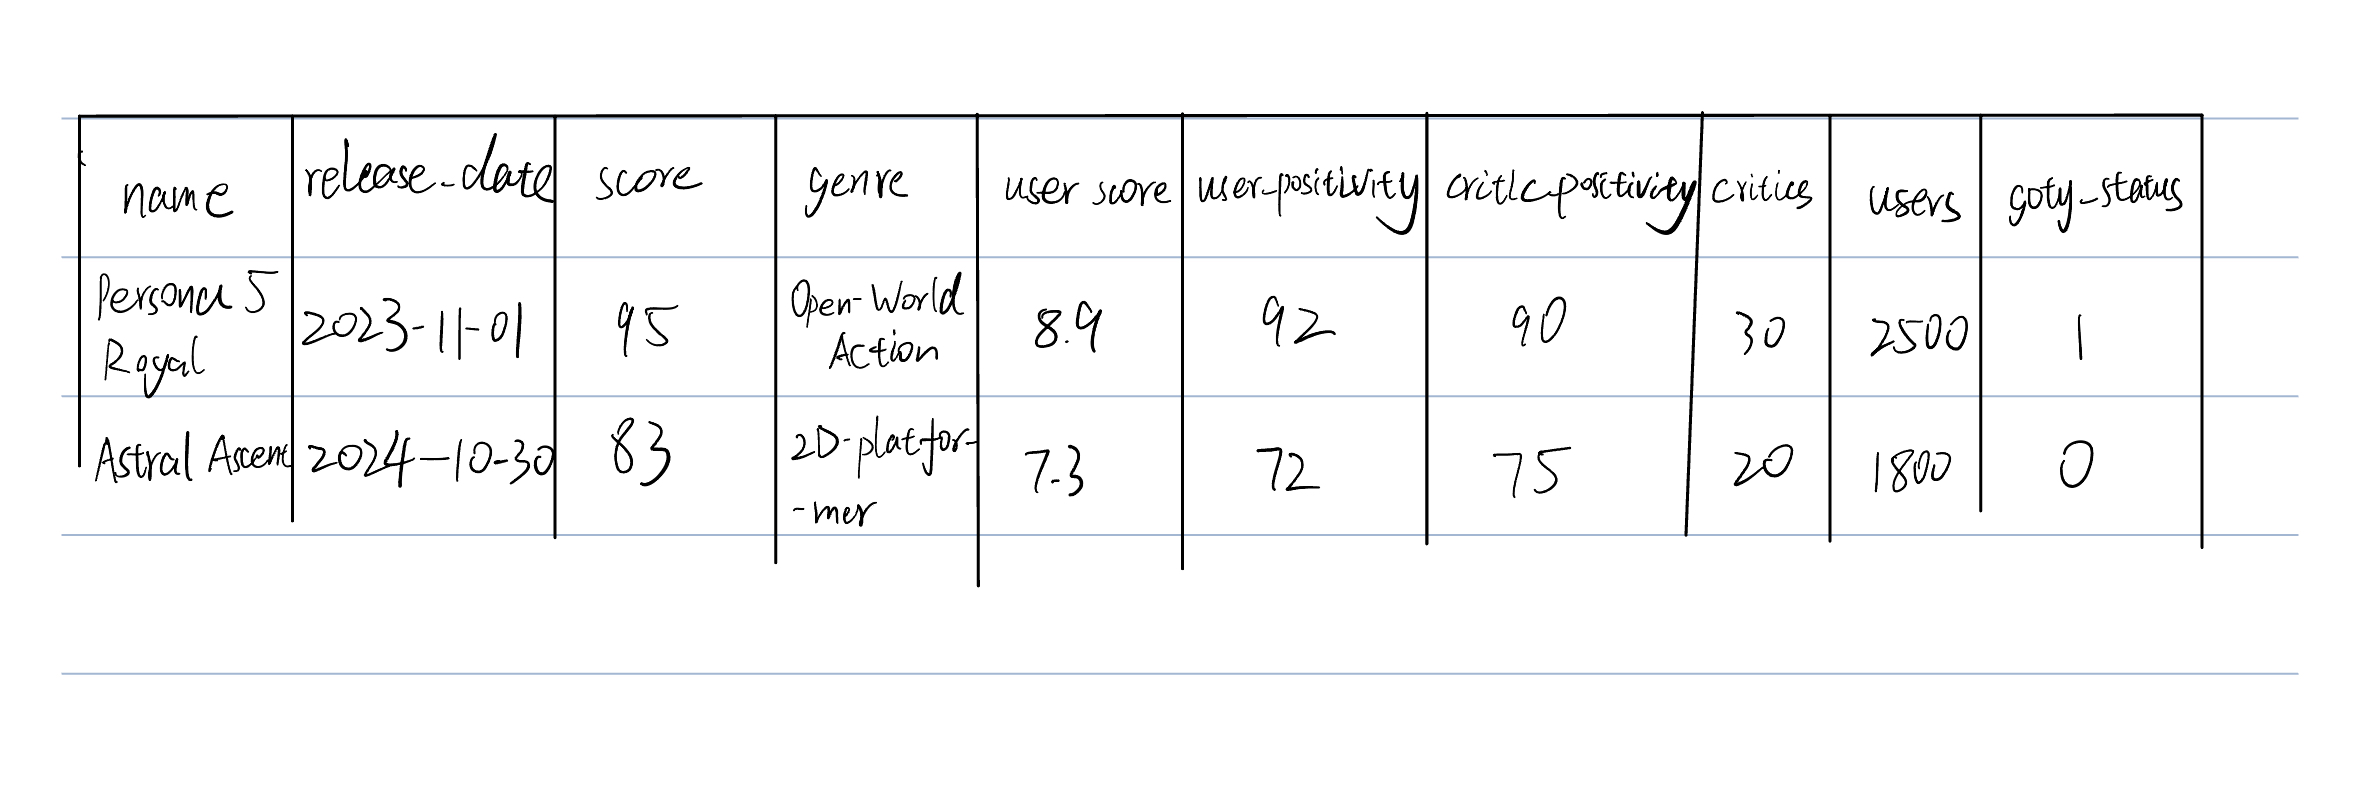 name release_date score genre user score user_positivity critic_positivity critics users goty_status
Persona 5 Royal 2023-11-01 95 Open-World Action 8.9 92 90 30 2500 1
Astral Ascent 2024-10-30 83 2D-platfor--mer 7.3 72 75 20 1800 0